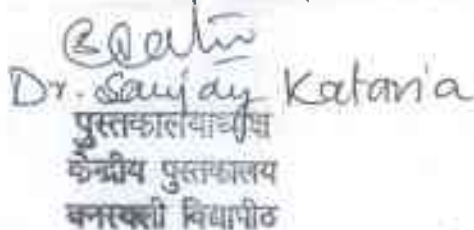 Dr. Sanjay Kataria
पुस्तकालयाध्यक्ष
केन्द्रीय पुस्तकालय
वनस्थली विद्यापीठ